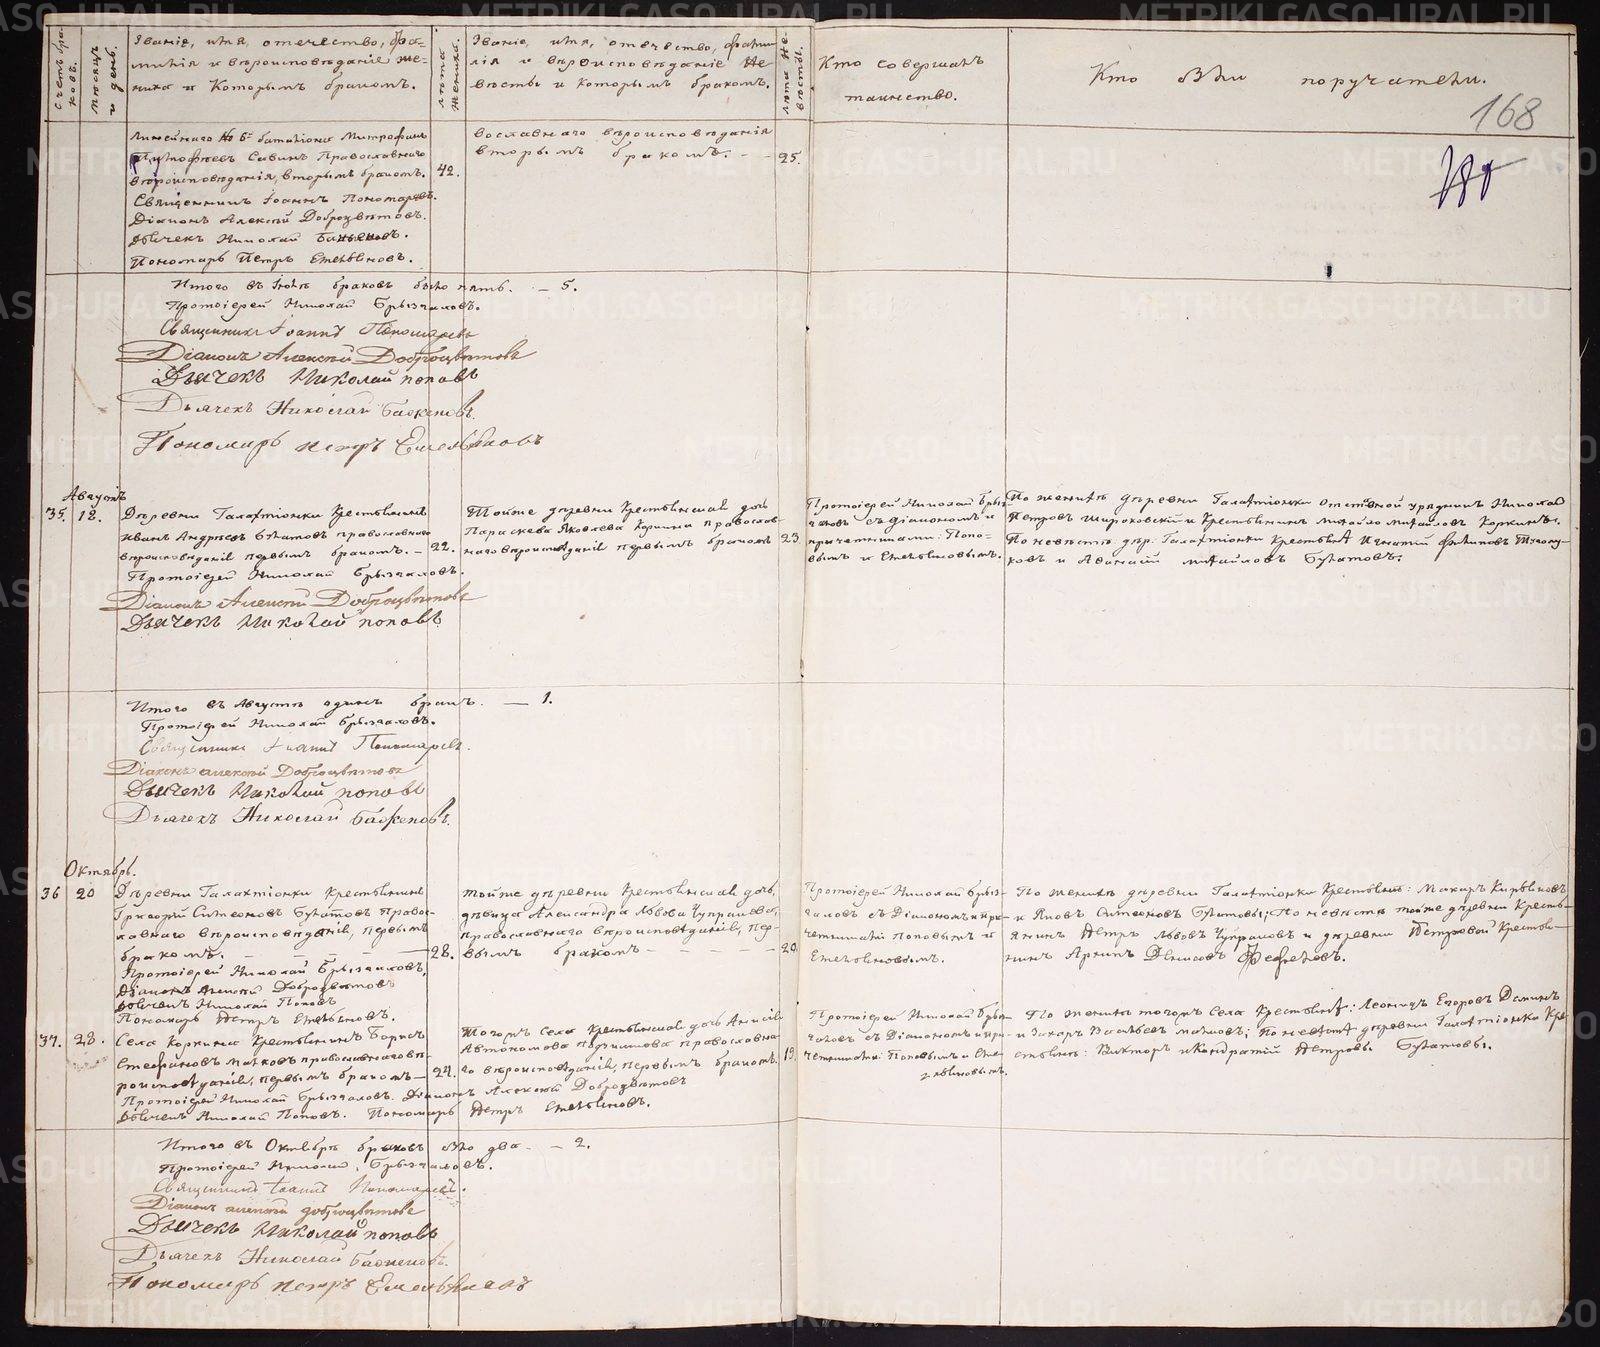 Счетъ бра-
ковъ.
Мѣсяцъ
и день.
Званіе, имя, отечество, фа-
милія и вѣроисповѣданіе же-
ниха и которымъ бракомъ.
Лѣта
жениха.
Званіе, имя, отечество, фами
лія и вѣроисповѣданіе не-
вѣсты и которымъ бракомъ.
Лѣта не-
вѣсты.
Кто совершалъ
таинство.
Кто были поручатели.
168
Линейнаго № 6 баталіона Митрофанъ
Савинъ Православнаго
вѣроисповѣданія, вторымъ бракомъ. 42.
Священникъ Іоаннъ Пономаревъ.
Діаконъ Алексѣй Доброцвѣтовъ.
Дьячекъ Николай Баженовъ.
Пономарь Петръ Емельяновъ.
вославнаго вѣроисповѣданія
вторымъ бракомъ. - - 25.
Итого въ Іюлѣ браковъ было пять. - 5.
Протоіерей Николай Брызгаловъ.
Священникъ Іоаннъ Пономаревъ
Діаконъ Алексѣй Доброцвѣтовъ
Дьячекъ Николай Поповъ
Дьячекъ Николай Баженовъ.
Пономарь Петръ Емельяновъ
Августъ
35. 18.
Деревни Галактіонки Крестьянинъ
Иванъ Андреевъ Булатовъ православнаго
вѣроисповѣданія первымъ бракомъ. - 22.
Протоіерей Николай Брызгаловъ.
Діаконъ Алексѣй Доброцвѣтовъ
Дьячекъ Николай Поповъ
Тойже деревни Крестьянская дочь
Параскева Яковлева Коркина православ-
наго вѣроисповѣданія первымъ бракомъ 23.
Протоіерей Николай Брыз-
галовъ съ діакономъ и
причетниками: Попо-
вымъ и Емельяновымъ.
По женихѣ деревни Галактіонки отставной урядникъ Николай
Петровъ Широковскій и Крестьянинъ Михайло Михайловъ Коркинъ.
По невѣстѣ дер. Галактіонки Крестьяне Игнатій Филиповъ
ковъ и Аѳанасій Михайловъ Булатовъ.
Итого въ Августѣ одинъ бракъ. — 1.
Протоіерей Николай Брызгаловъ.
Священникъ Іоаннъ Пономаревъ.
Діаконъ Алексѣй Доброцвѣтовъ
Дьячекъ Николай Поповъ
Дьячекъ Николай Баженовъ.
Октябрь.
36 20
Деревни Галактіонки Крестьянинъ
Григорій Симеоновъ Булатовъ Правос-
лавнаго вѣроисповѣданія, первымъ
бракомъ. - - - - 28.
Протоіерей Николай Брызгаловъ,
Діаконъ Алексѣй Доброцвѣтовъ
Дьячекъ Николай Поповъ
Пономарь Петръ Емельяновъ.
Тойже деревни Крестьянская дочь,
дѣвица Александра Львова Чупракова,
православнаго вѣроисповѣданія, пер-
вымъ бракомъ - - - 20.
Протоіерей Николай Брыз-
галовъ съ Діакономъ и при-
четниками Поповымъ и
Емельяновымъ.
По женихѣ деревни Галактіонки Крестьян: Макаръ Кириловъ
и Яковъ Симеоновъ Булатовы; По невѣстѣ тойже деревни Кресть-
янинъ Петръ Львовъ Чупраковъ и деревни Петровой Крестья-
нинъ Архипъ Денисовъ
37. 28.
Села Коркина Крестьянинъ Борисъ
Стефановъ православнаго вѣ-
роисповѣданія, первымъ бракомъ - 24.
Протоіерей Николай Брызгаловъ. Діаконъ Алексѣй Доброцвѣтовъ
Дьячекъ Николай Поповъ. Пономарь Петръ Емельяновъ.
Тогожъ села Крестьянская дочь Анисія
Автономова православна-
го вѣроисповѣданія, первымъ бракомъ. 19.
Протоіерей Николай Брыз-
галовъ съ Діакономъ и при-
четниками: Поповымъ и Еме-
льяновымъ.
По женихѣ тогожъ Села Крестьяне: Леонидъ Егоровъ Деминъ
и Захаръ Васильевъ; По невѣстѣ деревни Галактіонки Кре-
стьяне: Викторъ и Кондратій Петровы Булатовы.
Итого въ Октябрѣ браковъ было два - - 2.
Протоіерей Николай Брызгаловъ.
Священникъ Іоаннъ Пономаревъ.
Діаконъ Алексѣй Доброцвѣтовъ
Дьячекъ Николай Поповъ
Дьячекъ Николай Баженовъ.
Пономарь Петръ Емельяновъ
METRIKI.GASO-URAL.RU